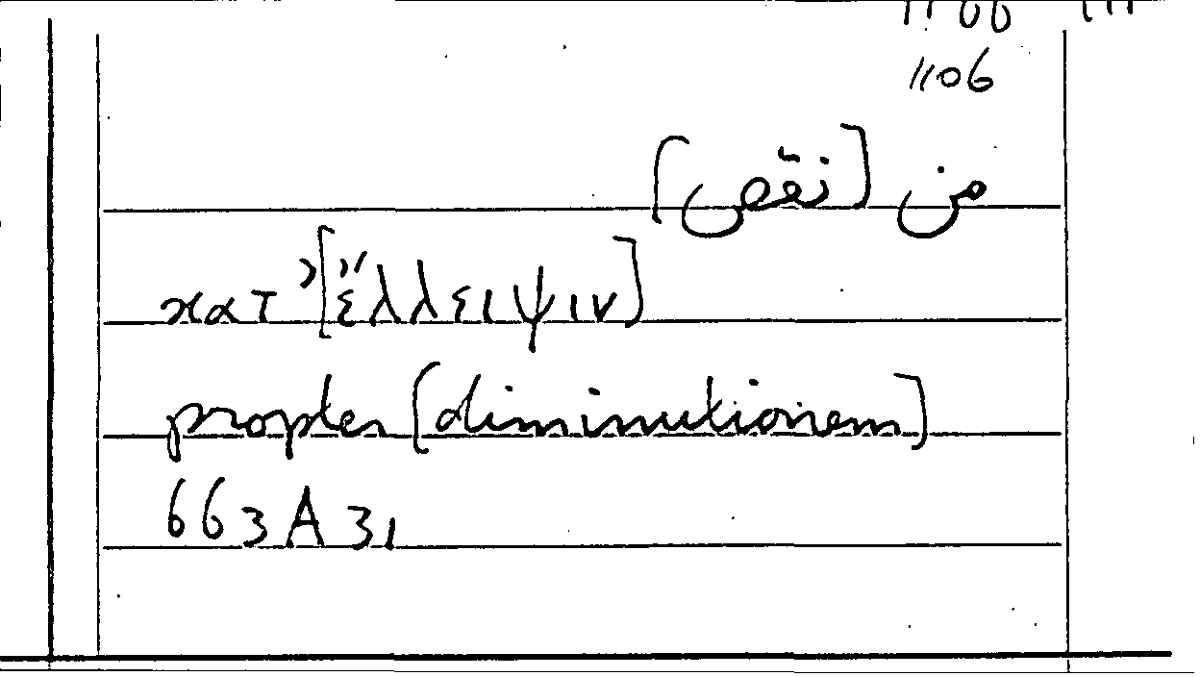 1106
من [نقص]
κατ᾽ [ἔλλειψιν]
propter [diminutionem]
663A31